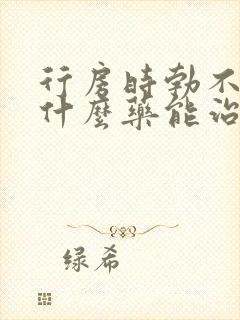 行房時勃不
什麼藥能治
绿希